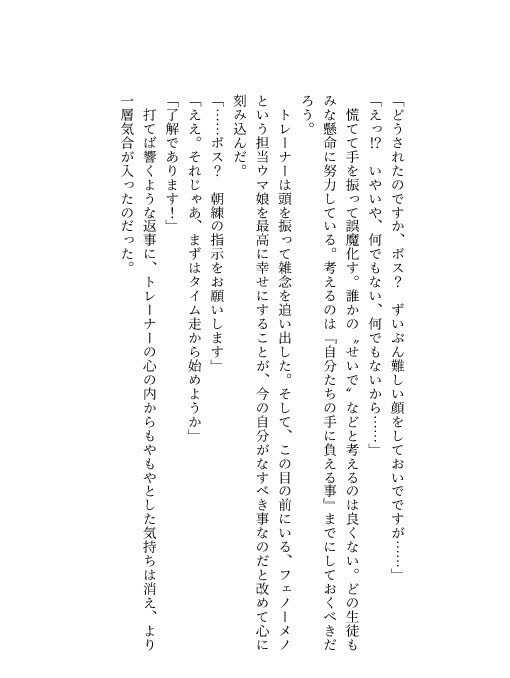 「どうされたのですか、ボス？　ずいぶん難しい顔をしておいでですが……」
「えっ⁉　いやいや、何でもない、何でもないから……」
　慌てて手を振って誤魔化す。誰かの〝せいで〟などと考えるのは良くない。どの生徒も
みな懸命に努力している。考えるのは『自分たちの手に負える事』までにしておくべきだ
ろう。
　トレーナーは頭を振って雑念を追い出した。そして、この目の前にいる、フェノーメノ
という担当ウマ娘を最高に幸せにすることが、今の自分がなすべき事なのだと改めて心に
刻み込んだ。
「……ボス？　朝練の指示をお願いします」
「ええ。それじゃあ、まずはタイム走から始めようか」
「了解であります！」
　打てば響くような返事に、トレーナーの心の内からもやもやとした気持ちは消え、より
一層気合が入ったのだった。